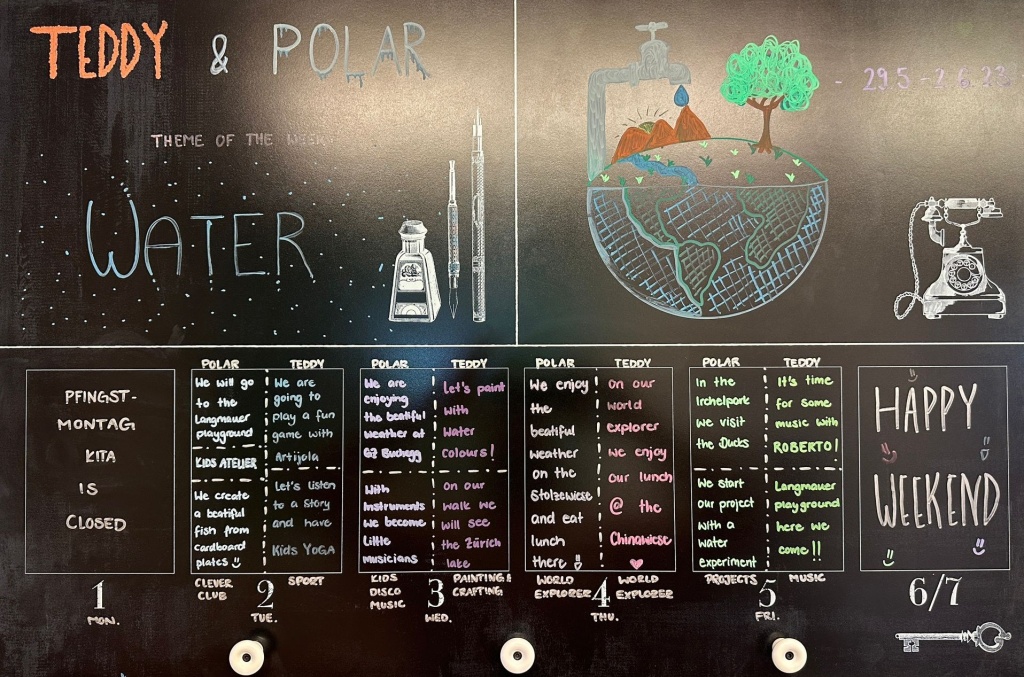 TEDDY & POLAR
- 29.5 - 2.6.23
THEME OF THE WEEK:
WATER
PFINGST-
MONTAG
KITA
IS
CLOSED
1
MON.
POLAR
We will go
to the
Langmauer
playground
KIDS ATELIER
We create
a beatiful
fish from
cardboard
plates
CLEVER
CLUB
TEDDY
We are
going to
play a fun
game with
Artijola
Let's listen
to a Story
and have
Kids YOGA
SPORT
2
TUE.
POLAR
We are
enjoying
the beatiful
weather at
GZ Buchegg
With
Instruments
we become
Little
musicians
KIDS
DISCO
MUSIC
TEDDY
Let's paint
with
Water
colours!
on our
walk we
will see
the Zürich
lake
PAINTING &
CRAFTING
3
WED.
POLAR
We enjoy
the
beatiful
weather
on the
Stolzewiese
and eat
lunch
there
WORLD
EXPLORER
TEDDY
on our
world
explorer
we enjoy
our lunch
@ the
Chinawiese
WORLD
EXPLORER
4
THU.
POLAR
In the
Irchelpark
we visit
the Ducks
We start
our project
with a
water
experiment
PROJECTS
TEDDY
It's time
for some
music with
ROBERTO!
Langmauer
playground
here we
come!!
MUSIC
5
FRI.
HAPPY
WEEKEND
6/7